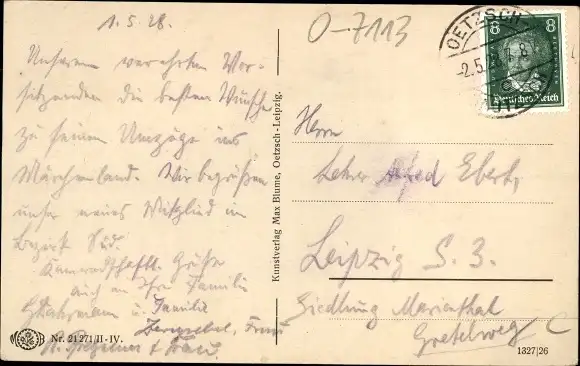 1.5.28.
O-7113
Unserem verehrten Vor-
sitzenden die besten Wünsche
zu seinem Umzuge ins
Märchenland. Wir begrüßen
unser neues Mitglied im
Bezirk Süd.
Kameradschaftl. Grüße
auch an Ihre Familie
u. Familie
Frau
+ Frau.
Nr. 21271/II-IV.
Kunstverlag Max Blume, Oetzsch-Leipzig.
OETZSCH
-2.5.
8 8
Deutsches Reich
Herrn
Lehrer Alfred Ebert,
Leipzig S. 3.
Siedlung Marienthal
Gretelweg
1327|26